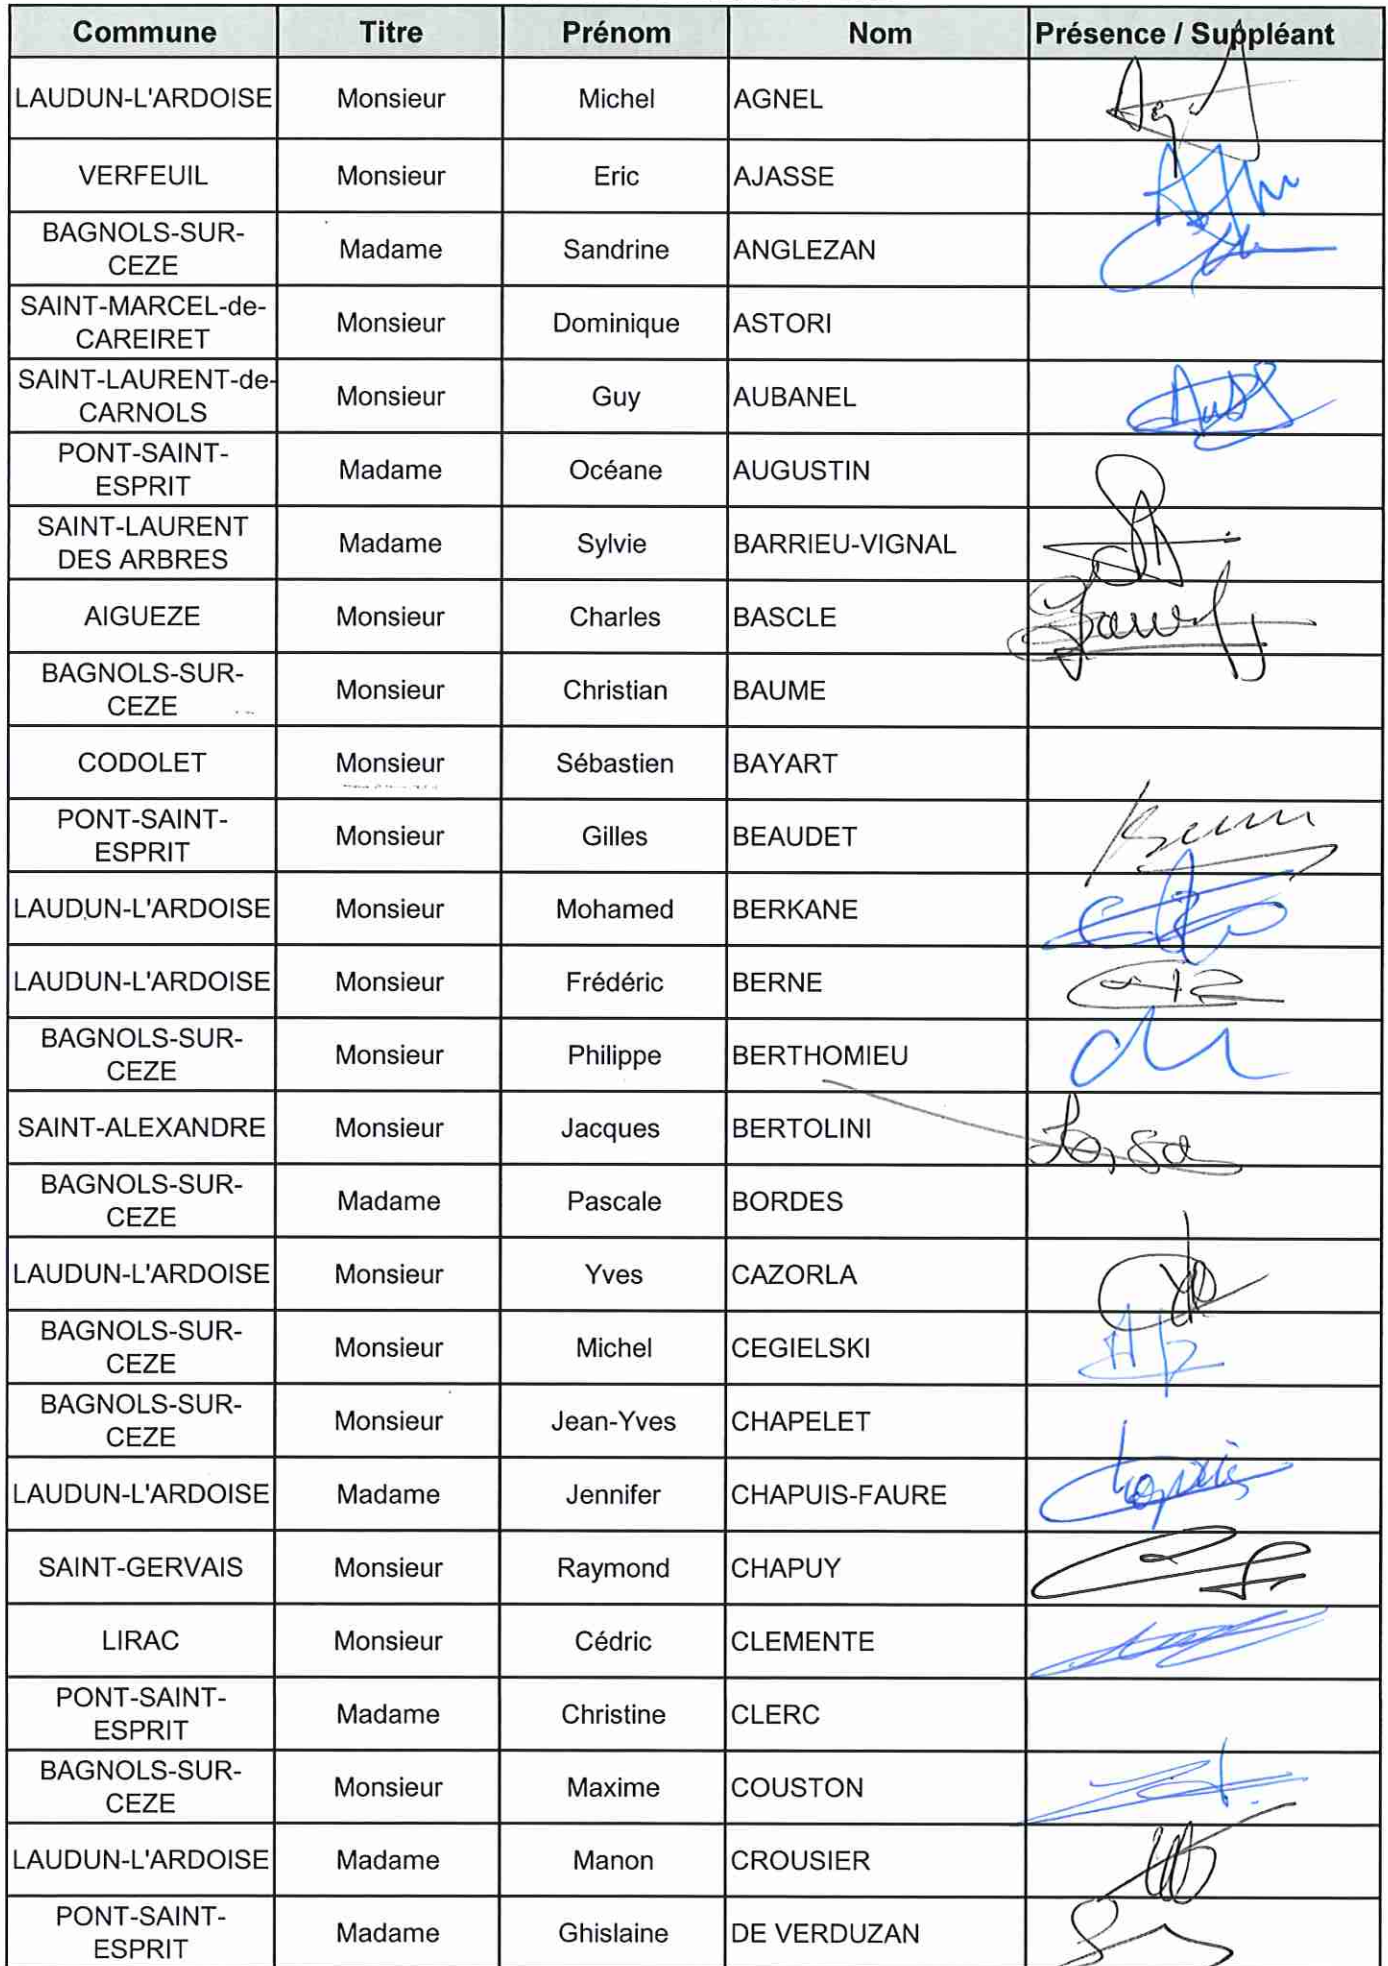 Commune Titre Prénom Nom Présence / Suppléant
LAUDUN-L'ARDOISE Monsieur Michel AGNEL
VERFEUIL Monsieur Eric AJASSE
BAGNOLS-SUR-
CEZE Madame Sandrine ANGLEZAN
SAINT-MARCEL-de-
CAREIRET Monsieur Dominique ASTORI
SAINT-LAURENT-de-
CARNOLS Monsieur Guy AUBANEL
PONT-SAINT-
ESPRIT Madame Océane AUGUSTIN
SAINT-LAURENT
DES ARBRES Madame Sylvie BARRIEU-VIGNAL
AIGUEZE Monsieur Charles BASCLE
BAGNOLS-SUR-
CEZE Monsieur Christian BAUME
CODOLET Monsieur Sébastien BAYART
PONT-SAINT-
ESPRIT Monsieur Gilles BEAUDET
LAUDUN-L'ARDOISE Monsieur Mohamed BERKANE
LAUDUN-L'ARDOISE Monsieur Frédéric BERNE
BAGNOLS-SUR-
CEZE Monsieur Philippe BERTHOMIEU
SAINT-ALEXANDRE Monsieur Jacques BERTOLINI
BAGNOLS-SUR-
CEZE Madame Pascale BORDES
LAUDUN-L'ARDOISE Monsieur Yves CAZORLA
BAGNOLS-SUR-
CEZE Monsieur Michel CEGIELSKI
BAGNOLS-SUR-
CEZE Monsieur Jean-Yves CHAPELET
LAUDUN-L'ARDOISE Madame Jennifer CHAPUIS-FAURE
SAINT-GERVAIS Monsieur Raymond CHAPUY
LIRAC Monsieur Cédric CLEMENTE
PONT-SAINT-
ESPRIT Madame Christine CLERC
BAGNOLS-SUR-
CEZE Monsieur Maxime COUSTON
LAUDUN-L'ARDOISE Madame Manon CROUSIER
PONT-SAINT-
ESPRIT Madame Ghislaine DE VERDUZAN